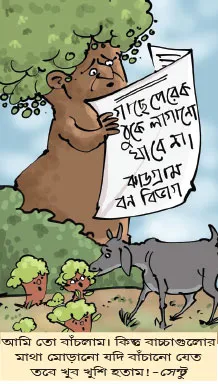 গাছে পেরেক
ঠুকে লাগানো
যাবে না।
ঝাড়গ্রাম
বন বিভাগ
আমি তো বাঁচলাম। কিন্তু বাচ্চাগুলোর
মাথা মোড়ানো যদি বাঁচানো যেত
তবে খুব খুশি হতাম! -সেন্টু